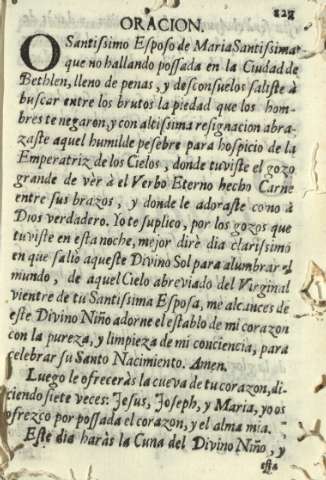 228
ORACION.
O Santissimo Esposo de Maria Santissima
que no hallando possada en la Ciudad de
Bethlen, lleno de penas, y desconsuelos saliste à
buscar entre los brutos la piedad que los hom-
bres te negaron, y con altissima resignacion abra-
zaste aquel humilde pesebre para hospicio de la
Emperatriz de los Cielos, donde tuviste el gozo
grande de vèr à el Verbo Eterno hecho Carne
entre sus brazos, y donde le adoraste como à
Dios verdadero. Yo te suplico, por los gozos que
tuviste en esta noche, mejor dirè dia clarissimo
en que salio aqueste Divino Sol para alumbrar el
mundo, de aquel Cielo abreviado del Virginal
vientre de tu Santissima Esposa, me alcances de
este Divino Niño adorne el establo de mi corazon
con la pureza, y limpieza de mi conciencia, para
celebrar su Santo Nacimiento. Amen.
Luego le ofreceràs la cueva de tu corazon, di-
ciendo siete veces: Jesus, Joseph, y Maria, yo os
ofrezco por possada el corazon, y el alma mia.
Este dia haràs la Cuna del Divino Niño, y
esta